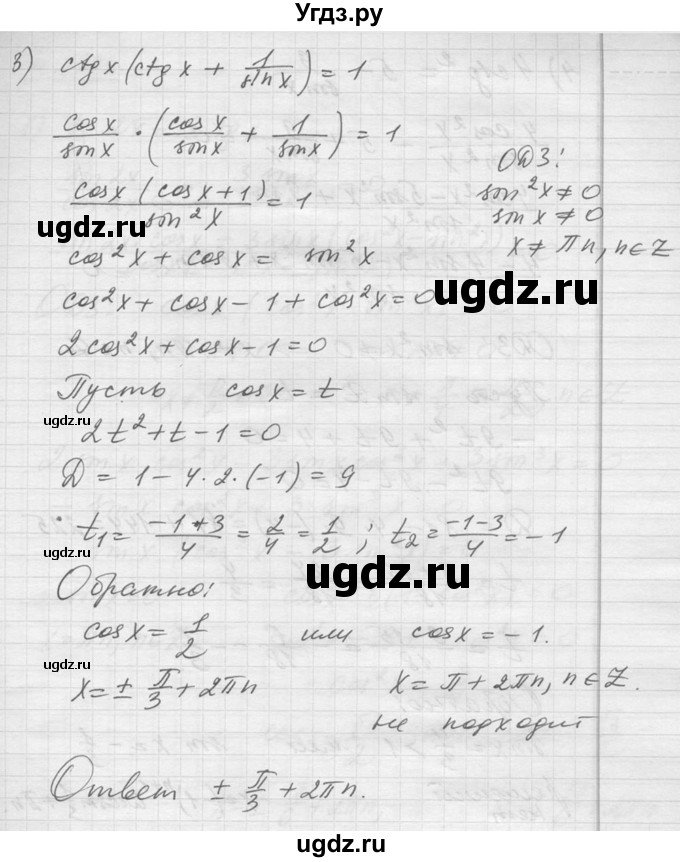 Угдз.ру
3) ctg x (ctg x + 1/sin x) = 1
cos x/sin x · (cos x/sin x + 1/sin x) = 1
ОДЗ:
cos x (cos x + 1)/sin²x = 1
sin²x ≠ 0
sin x ≠ 0
x ≠ πn, n ∈ Z
ugdz.ru
cos²x + cos x = sin²x
ugdz.ru
cos²x + cos x − 1 + cos²x = 0
2cos²x + cos x − 1 = 0
Пусть cos x = t
ugdz.ru
2t² + t − 1 = 0
D = 1 − 4·2·(−1) = 9
t₁ = (−1+3)/4 = 2/4 = 1/2 ; t₂ = (−1−3)/4 = −1
ugdz.ru
Обратно:
cos x = 1/2 или cos x = −1.
ugdz.ru
x = ± π/3 + 2πn x = π + 2πn, n ∈ Z.
не подходит
Ответ ± π/3 + 2πn.
ugdz.ru
ugdz.ru